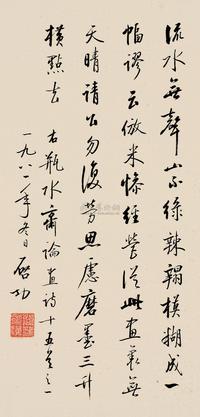 流水無聲山不綠辣模糊成一
幅謬云倣米慘經營從此畫裏無
天晴請公勿復勞思慮磨墨三升
橫點去 右瓶水齋論畫詩十五首之一
一九八二年冬日 啟功